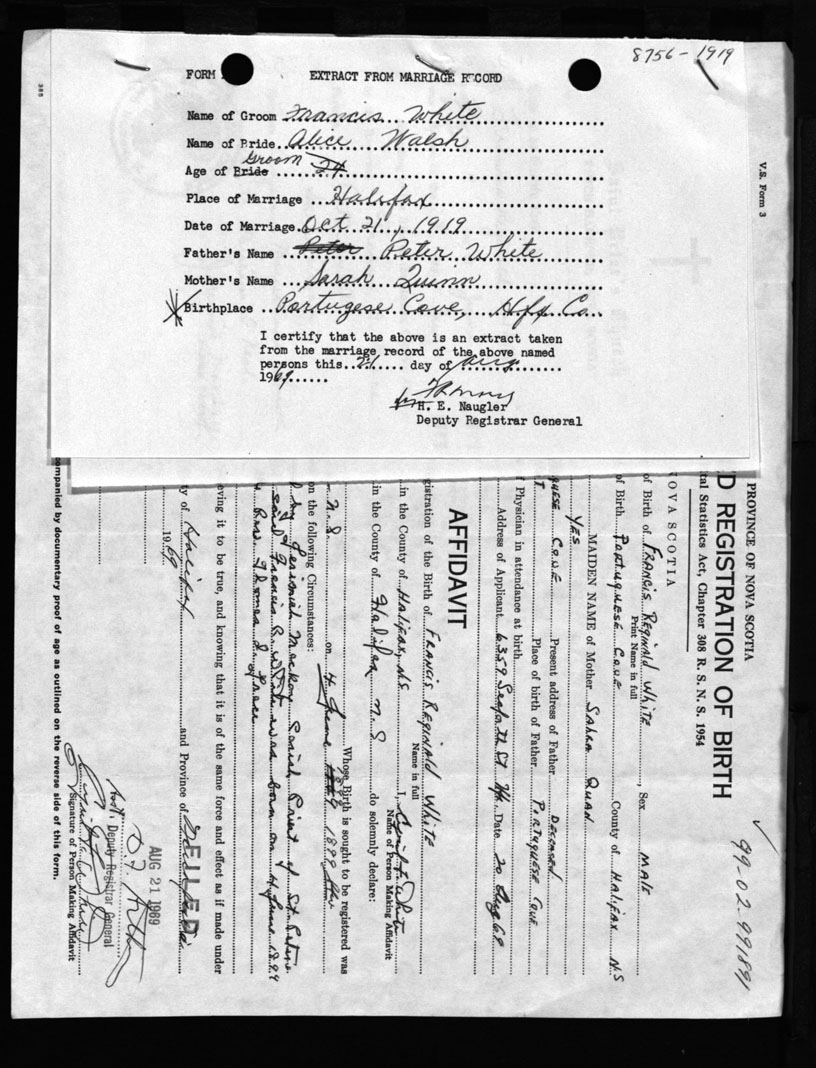 8756 - 1919
FORM
EXTRACT FROM MARRIAGE RECORD
Name of Groom Francis White
Name of Bride Alice Walsh
Groom
Age of Bride 24
Place of Marriage Halifax
Date of Marriage Oct 21, 1919
Father's Name Peter Peter White
Mother's Name Sarah Quinn
Birthplace Portugese Cove, Hfx Co.
I certify that the above is an extract taken
from the marriage record of the above named
persons this 21 day of Aug
1969
for H. E. Naugler
Deputy Registrar General
V.S. Form 3
PROVINCE OF NOVA SCOTIA
D REGISTRATION OF BIRTH
tal Statistics Act, Chapter 308 R. S. N. S. 1954
99-02-991891
NOVA SCOTIA
of Birth of FRANCIS REGINALD WHITE, Sex MALE
Print Name in full
of Birth PORTUGUESE COVE County of HALIFAX NS
MAIDEN NAME of Mother SAHRA QUAN
YES
Present address of Father DECEASED
GUESE COVE
Place of birth of Father PORTUGUESE COVE
Physician in attendance at birth
Address of Applicant 6359 Seaforth St Hfx Date 20 Aug 69
AFFIDAVIT
gistration of the Birth of FRANCIS REGINALD WHITE
Name in full
in the County of Halifax, N.S. I, Cyril White
Name of Person Making Affidavit
in the County of Halifax N.S do solemnly declare:
Whose Birth is sought to be registered was
N.S. on 4 June 1899
on the following Circumstances:
by Parish Priest of St. Peters
said Francis R. White was born on 4 June 1899
Rev. Thomas
eving it to be true, and knowing that it is of the same force and effect as if made under
ty of Halifax and Province of
1969
AUG 21 1969
Deputy Registrar General
Signature of Person Making Affidavit
ompanied by documentary proof of age as outlined on the reverse side of this form.